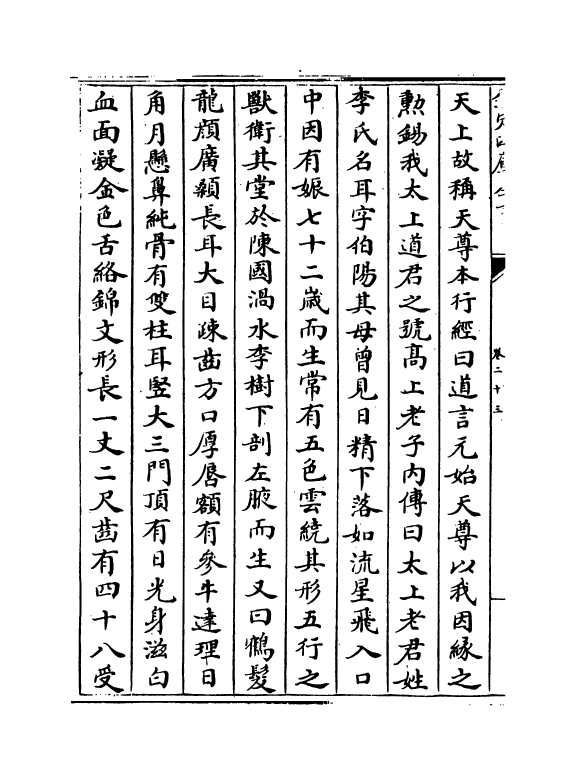 天上故稱天尊本行經曰道言元始天尊以我因緣之
勲錫我太上道君之號髙上老子内傳曰太上老君姓
李氏名耳字伯陽其母曾見日精下落如流星飛入口
中因有娠七十二歳而生常有五色雲繞其形五行之
獸衛其堂於陳國渦水李樹下剖左腋而生又曰鶴髮
龍顔廣顙長耳大目疎齒方口厚唇額有參牛達理日
角月懸鼻純骨有雙柱耳竪大三門頂有日光身滋白
血面凝金色舌絡錦文形長一丈二尺齒有四十八受
卷二十三